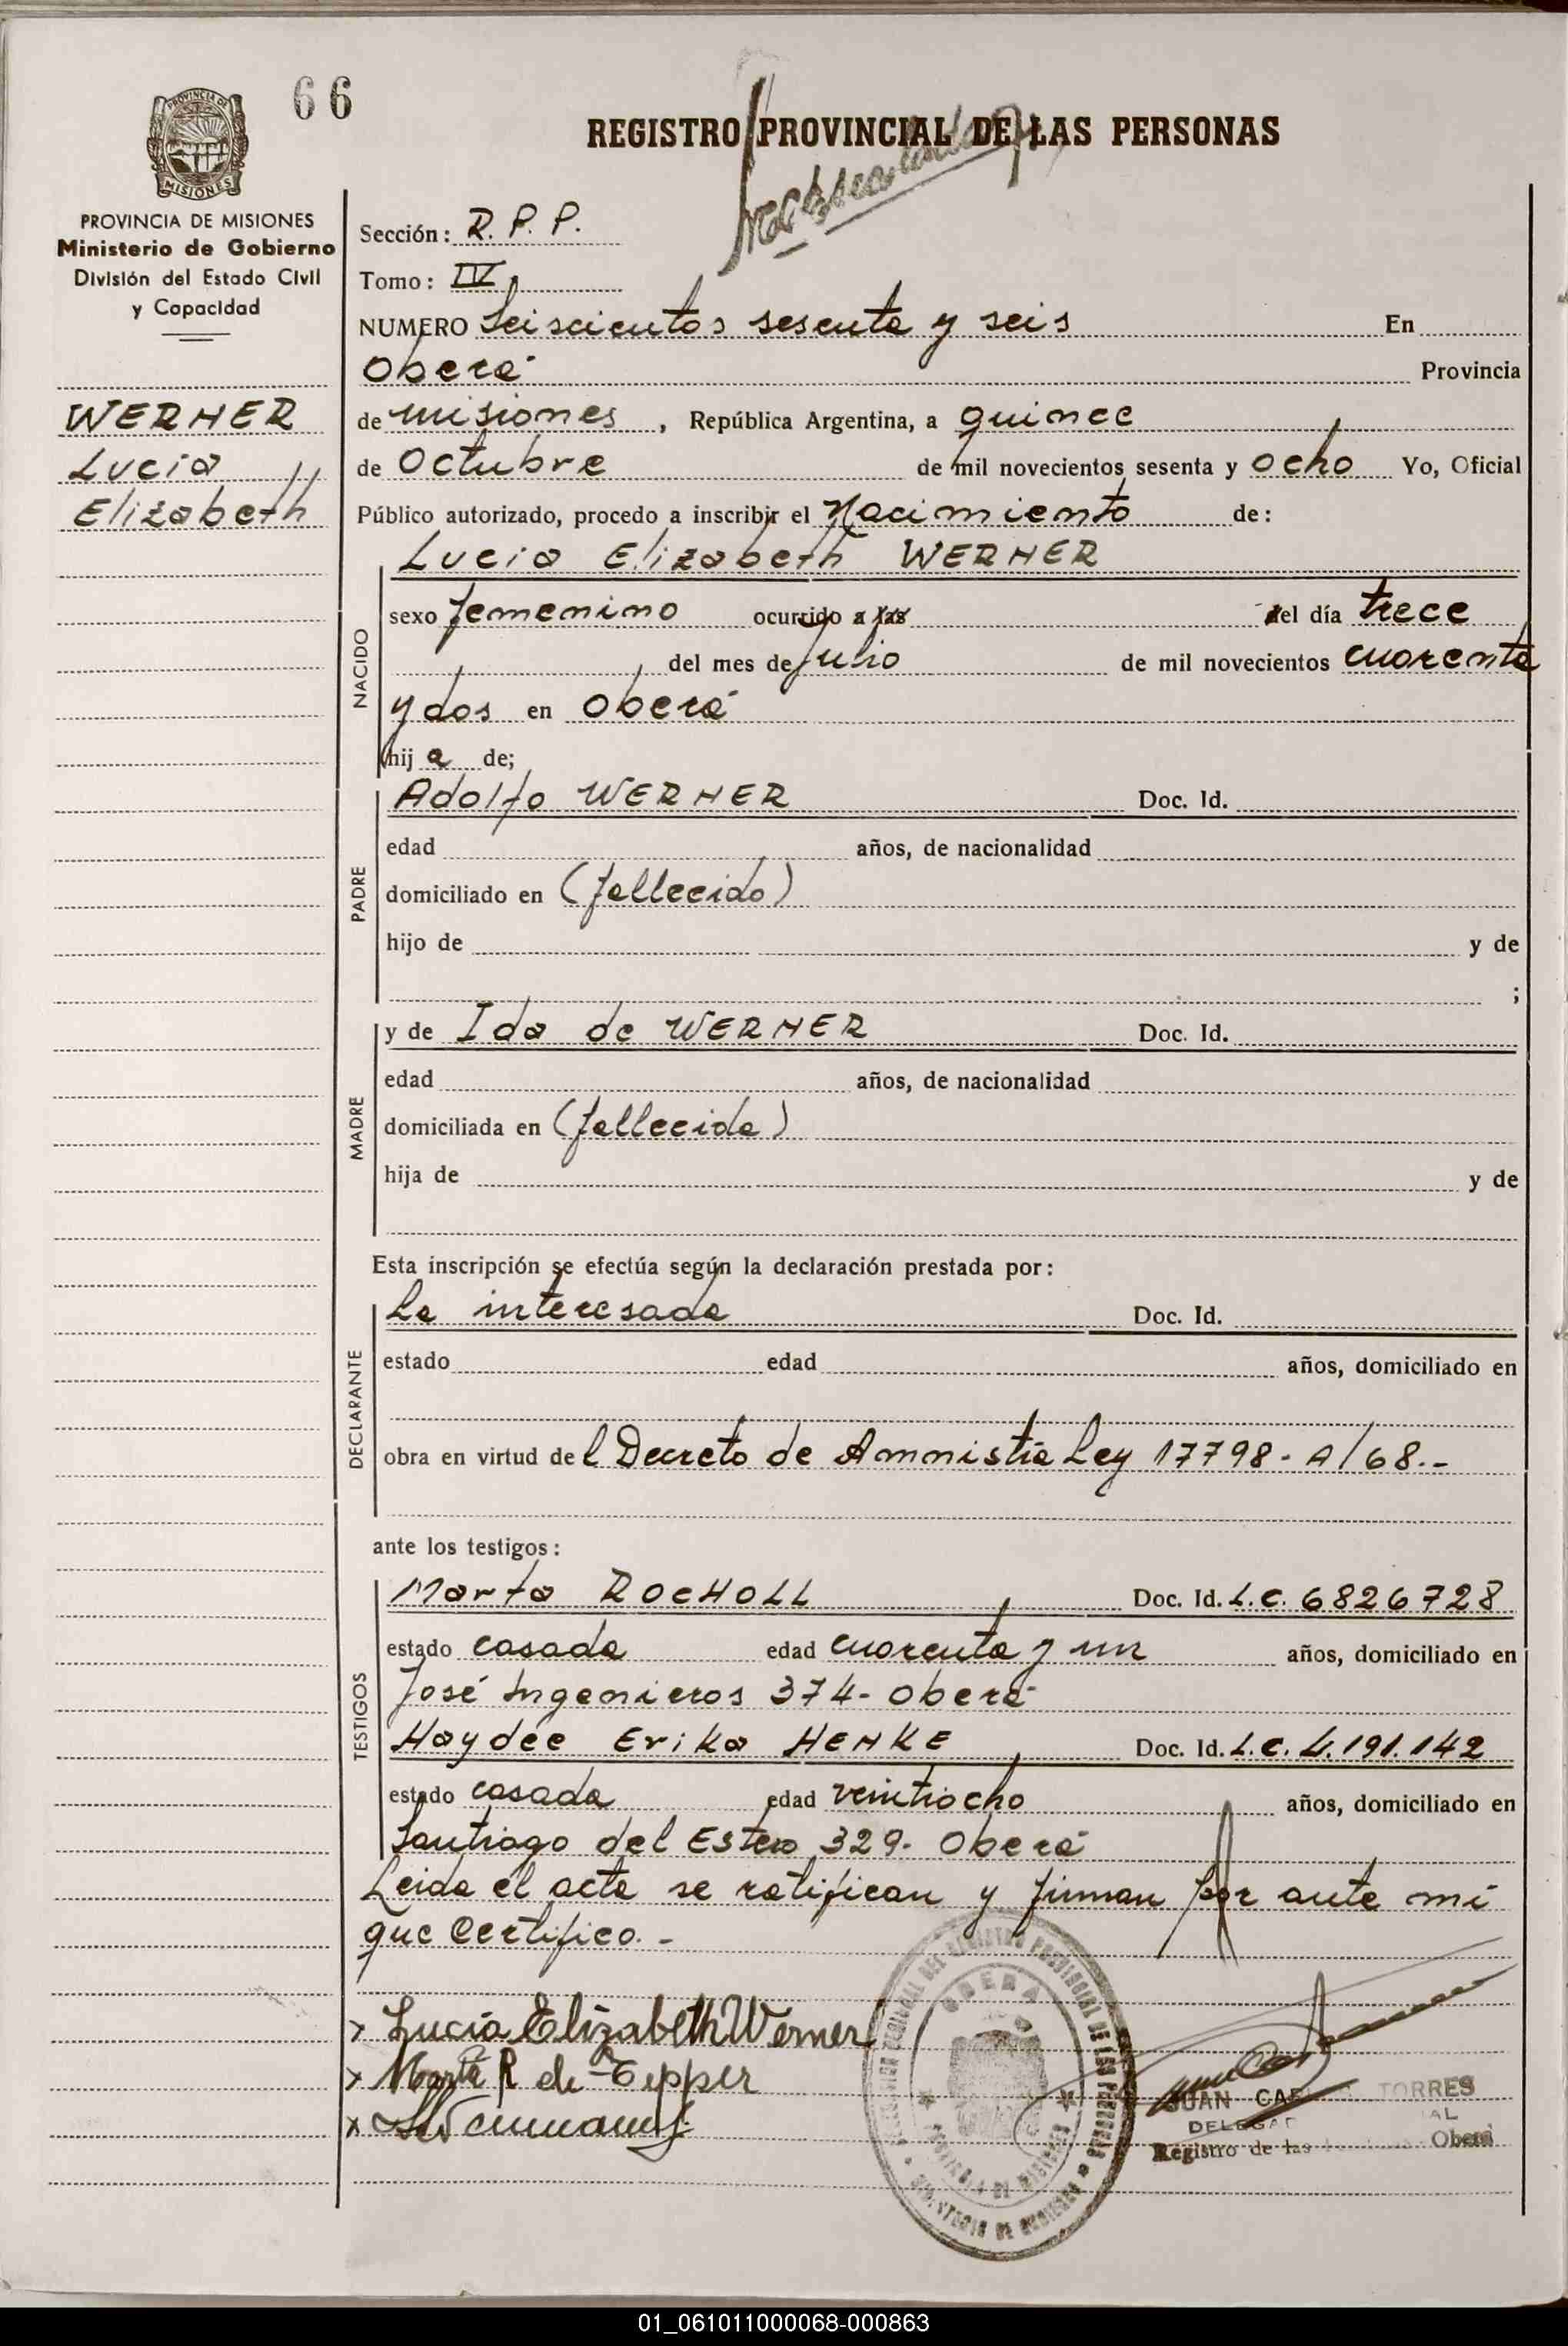 66
PROVINCIA DE
MISIONES
REGISTRO PROVINCIAL DE LAS PERSONAS
PROVINCIA DE MISIONES
Ministerio de Gobierno
División del Estado Civil
y Capacidad
WERNER
Lucia
Elizabeth
Sección: R. P. P.
Tomo: IV
NUMERO Seiscientos sesenta y seis En
Oberá Provincia
de misiones, República Argentina, a quince
de Octubre de mil novecientos sesenta y ocho Yo, Oficial
Público autorizado, procedo a inscribir el Nacimiento de:
Lucia Elizabeth WERNER
NACIDO
sexo femenino ocurrido a las del día trece
del mes de Julio de mil novecientos cuarenta
y dos en Oberá
hij a de;
PADRE
Adolfo WERNER Doc. Id.
edad años, de nacionalidad
domiciliado en (fallecido)
hijo de y de
;
MADRE
y de Ida de WERNER Doc. Id.
edad años, de nacionalidad
domiciliada en (fallecida)
hija de y de
Esta inscripción se efectúa según la declaración prestada por:
DECLARANTE
La interesada Doc. Id.
estado edad años, domiciliado en
obra en virtud del Decreto de Amnistía Ley 17798-A/68.-
ante los testigos:
TESTIGOS
Marta ROCHOLL Doc. Id. L.C. 6826728
estado casada edad cuarenta y un años, domiciliado en
José Ingenieros 374- Oberá
Haydée Erika HENKE Doc. Id. L.C. 4.191.142
estado casada edad veintiocho años, domiciliado en
Santiago del Estero 329- Oberá
Leida el acta se ratifican y firman por ante mí
que Certifico.-
x Lucía Elizabeth Werner
x Marta R de Tepper
x
OBERA
JUAN CA TORRES
DELEGA AL
Registro de las Oberá
01_061011000068-000863